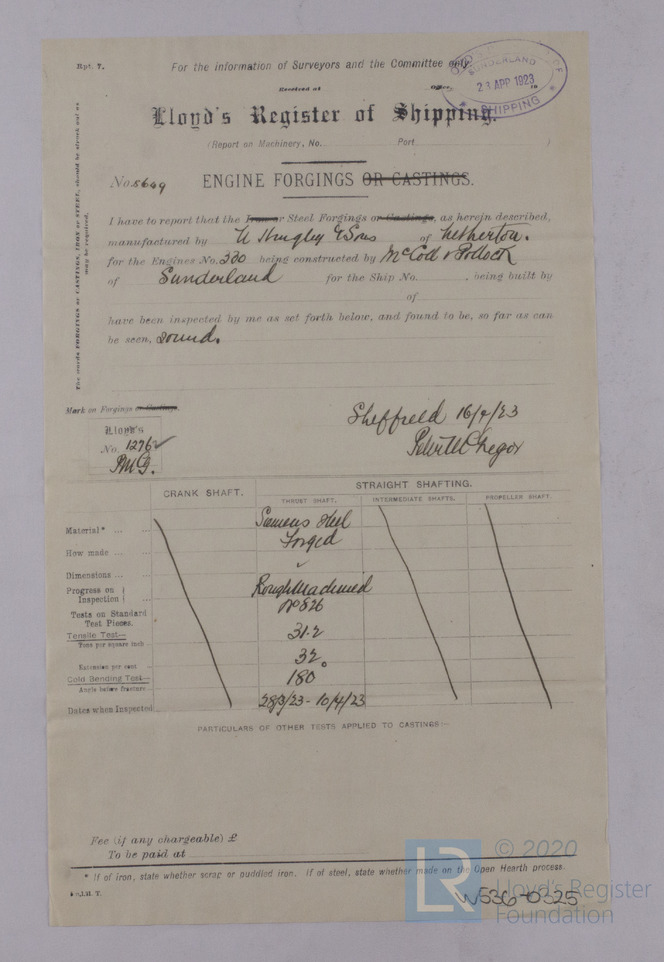 Rpt. 7.
For the information of Surveyors and the Committee only.
SUNDERLAND
23 APR 1923
SHIPPING
Received at Office, 19
Lloyd's Register of Shipping.
(Report on Machinery, No. Port )
No. 5649
ENGINE FORGINGS OR CASTINGS.
The words FORGINGS or CASTINGS, IRON or STEEL, should be struck out as may be required.
I have to report that the Iron or Steel Forgings or Castings, as herein described,
manufactured by N Hingley & Sons of Netherton.
for the Engines No. 220 being constructed by McColl & Pollock
of Sunderland for the Ship No. , being built by
of
have been inspected by me as set forth below, and found to be, so far as can
be seen, sound.
Mark on Forgings or Castings.
Lloyd's
No. 1276
RMG.
Sheffield 16/4/23
CRANK SHAFT.
STRAIGHT SHAFTING.
THRUST SHAFT.
INTERMEDIATE SHAFTS.
PROPELLER SHAFT.
Material* ... ... Siemens Steel
How made ... ... Forged
Dimensions ... ...
Progress on Inspection ... Rough Machined
No 826
Tests on Standard Test Pieces.
Tensile Test—
Tons per square inch 31.2
Extension per cent 32
Cold Bending Test—
Angle before fracture 180°
Dates when Inspected 28/3/23 - 10/4/23
PARTICULARS OF OTHER TESTS APPLIED TO CASTINGS:—
Fee (if any chargeable) £
To be paid at
* If of iron, state whether scrap or puddled iron. If of steel, state whether made on the Open Hearth process.
W536-0325
LR
© 2020
Lloyd's Register
Foundation